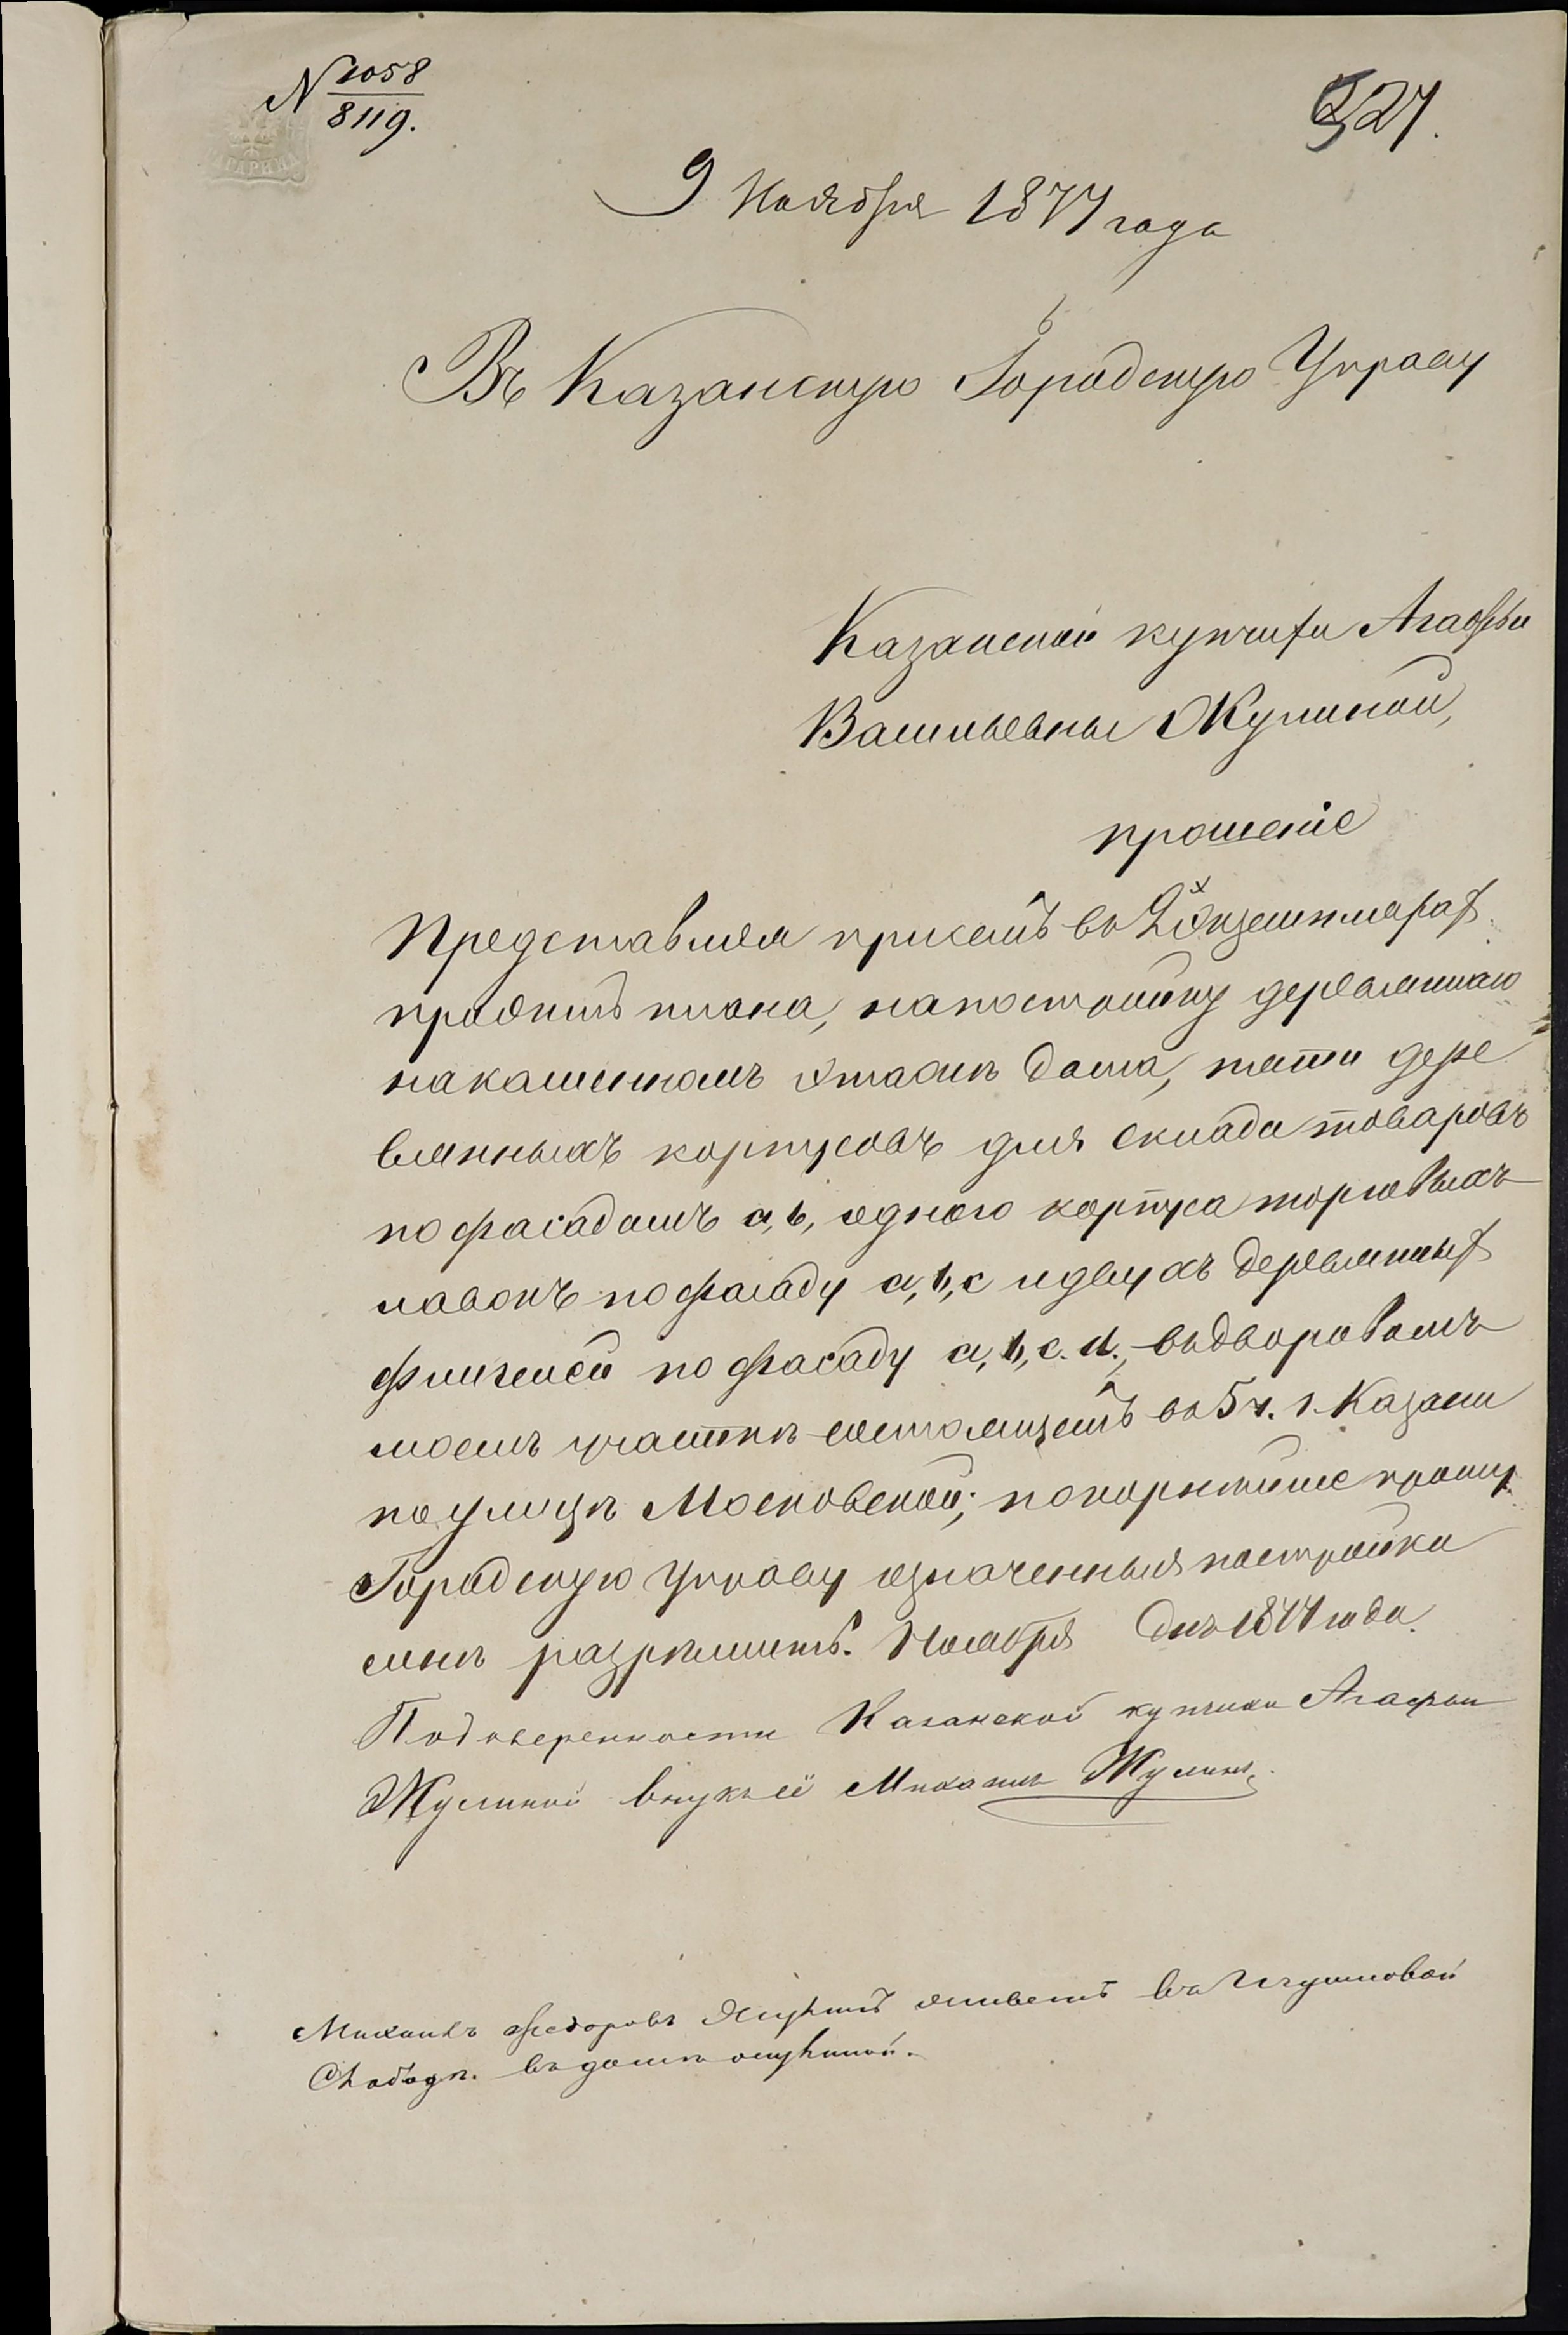 N 1058
8119.
327.
9 Ноября 1877 года
Въ Казанскую Городскую Управу
Казанской купчихи Агафьи
Васильевны Жулиной,
прошеніе
Представляя присемъ въ 2х экземплярах
проэктъ плана, на постройку деревяннаго
на каменномъ этажѣ дома, пяти дере
вянныхъ корпусовъ для склада товаровъ
по фасадамъ а, b, одного корпуса торговыхъ
лавокъ по фасаду а, b, с и двухъ деревянных
флигелей по фасаду а, b, с. d., въ дворовомъ
моемъ участкѣ состоящемъ въ 5 ч. г. Казани
по улицѣ Московской; покорнѣйше прошу
Городскую Управу означенныя постройки
мнѣ разрѣшить. Ноября дня 1877 года.
По доверенности Казанской купчихи Агафьи
Жулиной внукъ её Михаилъ Жулинъ
Михаилъ Федоровъ Жулинъ живетъ въ
Слободѣ. въ домѣ Жулиной.